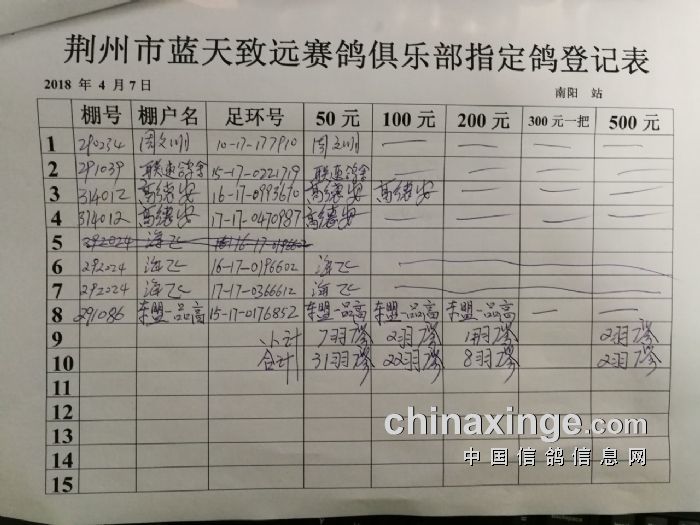 荆州市蓝天致远赛鸽俱乐部指定鸽登记表
2018 年 4 月 7 日 南阳 站
棚号 棚户名 足环号 50 元 100 元 200 元 300 元一把 500 元
1 290234 周文川 10-17-177910 周文川 — — — —
2 291039 联惠鸽舍 15-17-0221719 联惠鸽舍 — — — —
3 314012 高绪安 16-17-0993670 高绪安 高绪安 — — —
4 314012 高绪安 17-17-0470987 高绪安 — — — —
5 292024 海飞 16-17-0196602
6 292024 海飞 16-17-0196602 海飞
7 292024 海飞 17-17-0366612 海飞
8 291086 东盟一品高 15-17-0176852 东盟一品高 东盟一品高 东盟一品高 — —
9 小计 7羽 2羽 1羽 2羽
10 合计 31羽 22羽 8羽 2羽
11
12
13
14
15
chinaxinge.com
中国信鸽信息网